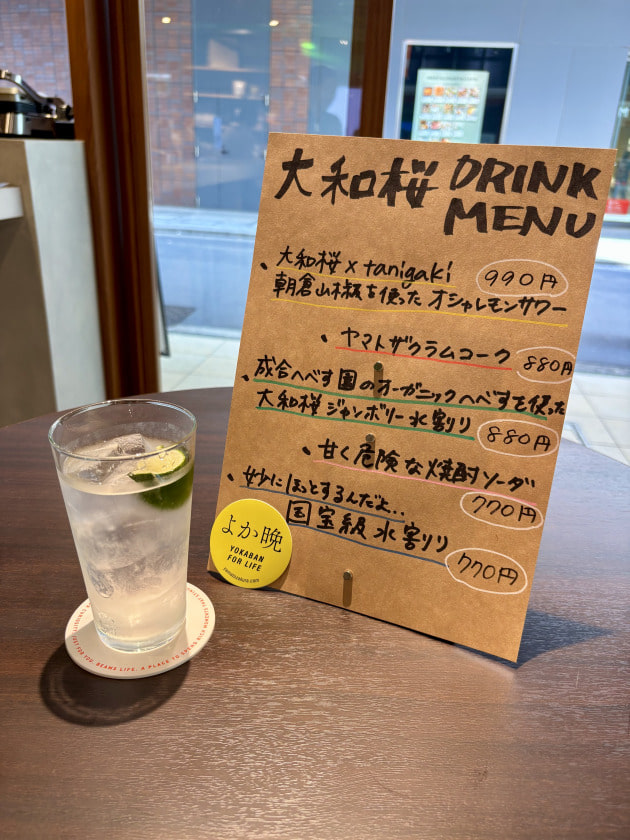 大和桜 DRINK
MENU
・大和桜×tanigaki 990円
朝倉山椒を使ったオシャレモンサワー
・ヤマトザクラムコーク 880円
・成合へべす園のオーガニックへべすを使った
大和桜ジャンボリー水割り 880円
・甘く危険な焼酎ソーダ
770円
・妙にほっとするんだよ..
国宝級水割り
770円
よか晩
YOKABAN
FOR LIFE
BEAMS LIFE. A PLACE TO